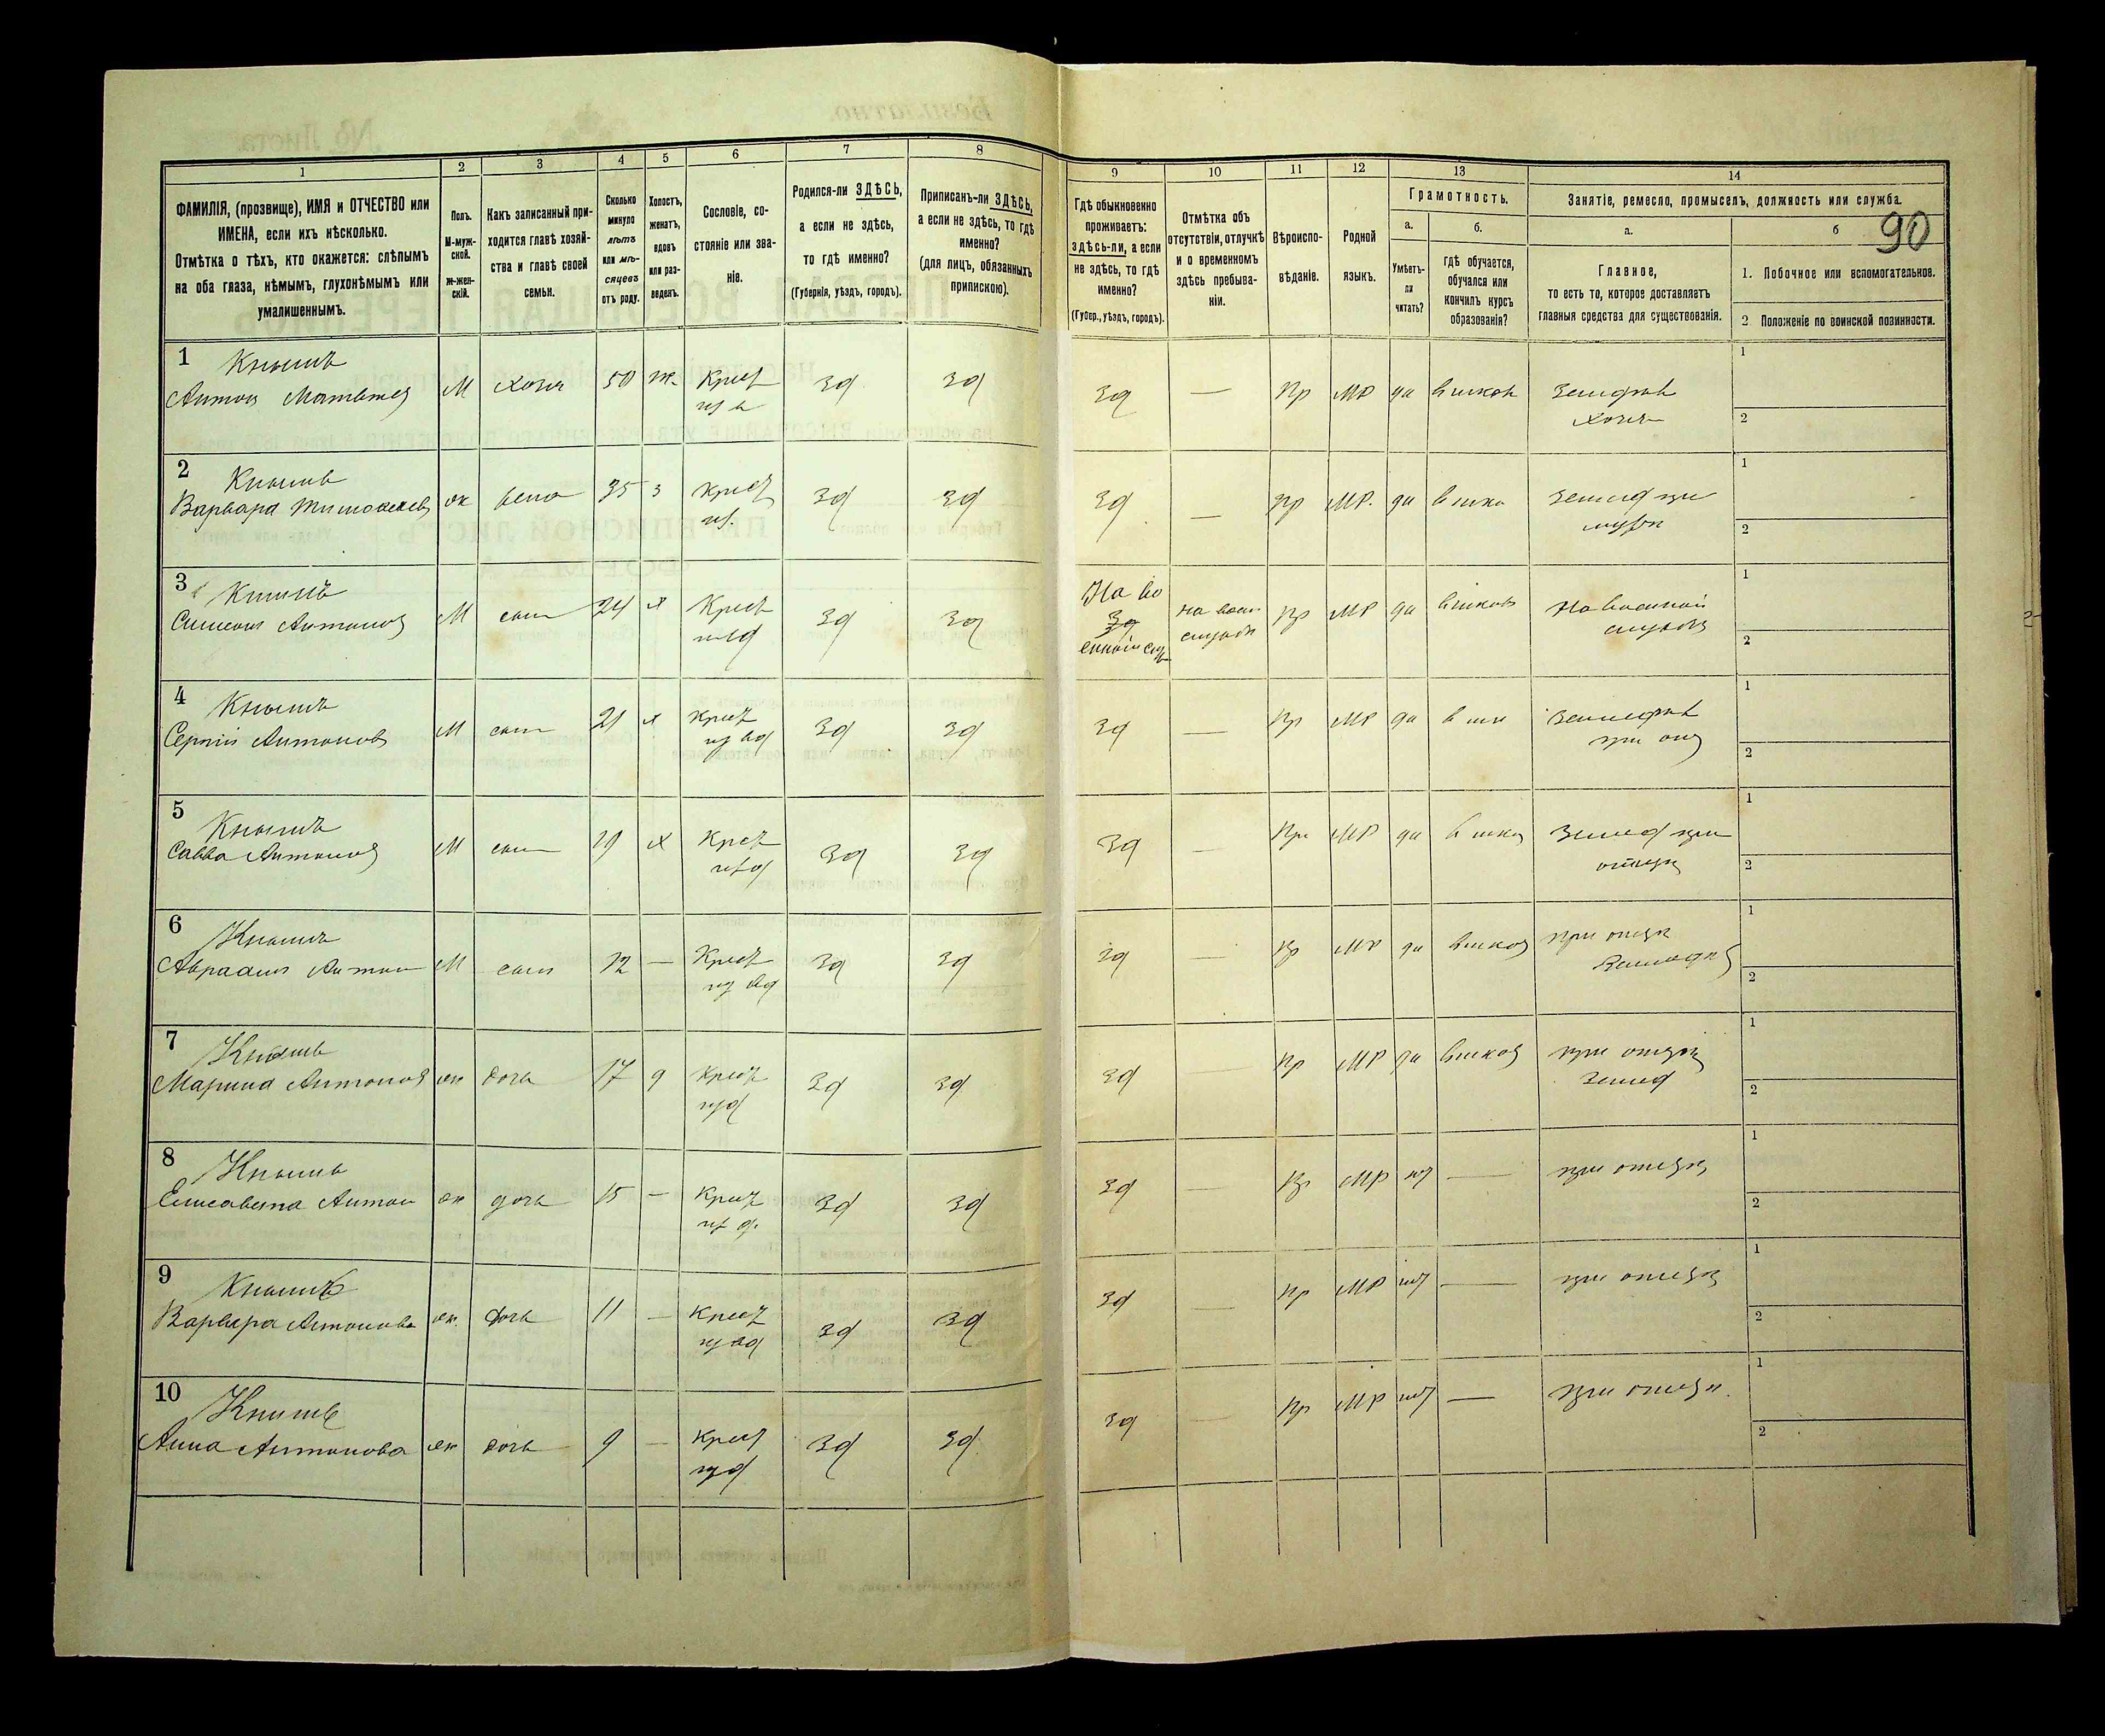 90
1 2 3 4 5 6 7 8 9 10 11 12 13 14
ФАМИЛІЯ, (прозвище), ИМЯ и ОТЧЕСТВО или
ИМЕНА, если ихъ нѣсколько.
Отмѣтка о тѣхъ, кто окажется: слѣпымъ
на оба глаза, нѣмымъ, глухонѣмымъ или
умалишеннымъ.
Полъ.
М-муж-
ской.
ж-жен-
скій.
Какъ записанный при-
ходится главѣ хозяй-
ства и главѣ своей
семьи.
Сколько
минуло
лѣтъ
или мѣ-
сяцевъ
отъ роду.
Холостъ,
женатъ,
вдовъ
или раз-
веденъ.
Сословіе, со-
стояніе или зва-
ніе.
Родился-ли ЗДѢСЬ,
а если не здѣсь,
то гдѣ именно?
(Губернія, уѣздъ, городъ).
Приписанъ-ли ЗДѢСЬ,
а если не здѣсь, то гдѣ
именно?
(для лицъ, обязанныхъ
припискою).
Гдѣ обыкновенно
проживаетъ:
здѣсь-ли, а если
не здѣсь, то гдѣ
именно?
(Губер., уѣздъ, городъ).
Отмѣтка объ
отсутствіи, отлучкѣ
и о временномъ
здѣсь пребыва-
ніи.
Вѣроиспо-
вѣданіе.
Родной
языкъ.
Грамотность.
а.
Умѣетъ-
ли
читать?
б.
гдѣ обучается,
обучался или
кончилъ курсъ
образованія?
Занятіе, ремесло, промыселъ, должность или служба.
а.
Главное,
то есть то, которое доставляетъ
главныя средства для существованія.
б
1. Побочное или вспомогательное.
2 Положеніе по воинской повинности.
1 Кнышъ
Антон М 50 ж. Крест зд зд зд — Пр МР да 1
хозя 2
2 Кнышъ
Варвара жена 35 з крест зд зд зд — пр МР. да 1
2
3 Кнышъ
Симеон Антонов М сын 24 х Крест зд зд На во зд енной на воен служб Пр МР да На военной 1
службе 2
4 Кнышъ
Сергій Антонов М сын 21 х крест зд зд зд — Пр МР да 1
2
5 Кнышъ
Савва Антонов М сын 19 х Крест зд зд зд — Пр МР да Землед при 1
отце 2
6 Кнышъ
Авраам Антон М сын 12 — Крест зд зд зд — Пр МР да при отце 1
2
7 Кнышъ
Марина Антонов ж дочь 17 д Крест зд зд зд — пр МР да при отце 1
землед 2
8 Кнышъ
Елисавета Антон ж дочь 15 — Крест зд зд зд — Пр МР нет — при отце 1
2
9 Кнышъ
Варвара Антонова ж. дочь 11 — Крест зд зд зд — Пр МР нет — при отце 1
2
10 Кнышъ
Анна Антонова ж дочь 9 — Крест зд зд зд — Пр МР нет — при отце. 1
2